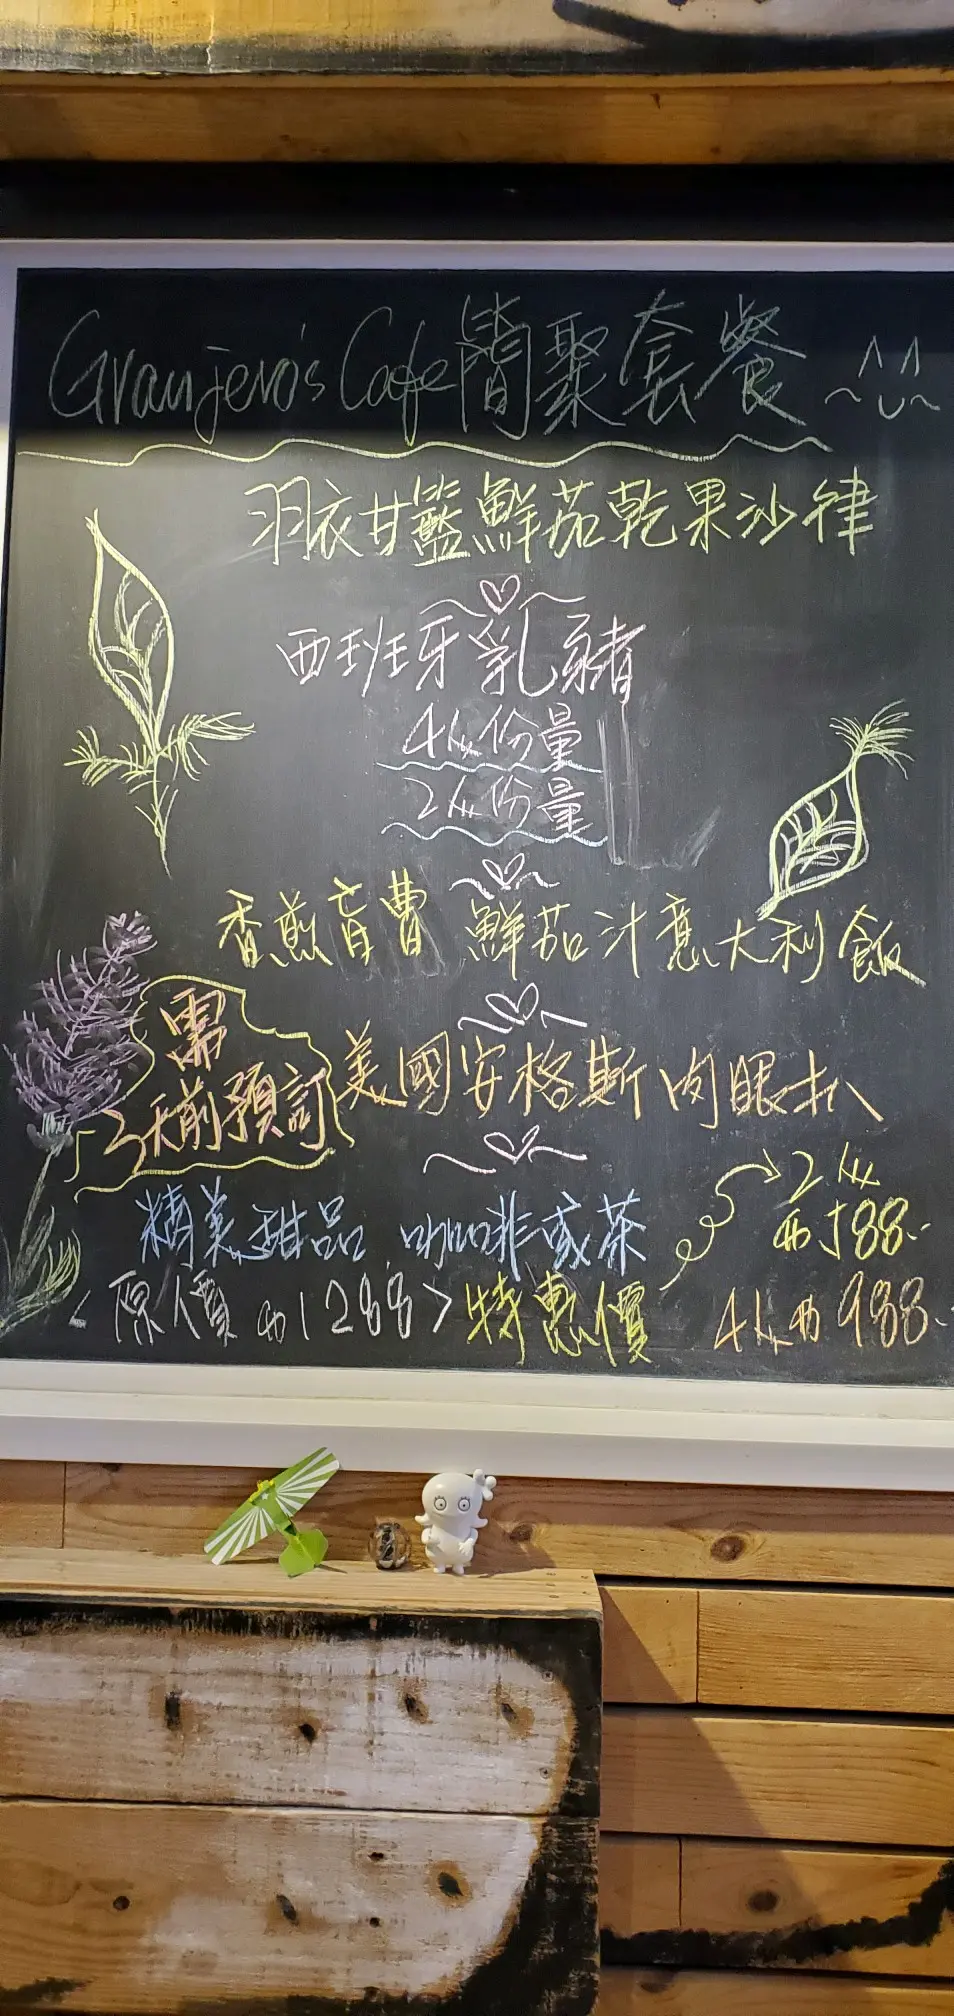 Granjero's Cafe 簡聚套餐
羽衣甘籃鮮茄乾果沙律
西班牙乳豬
4人份量
2人份量
香煎盲曹 鮮茄汁意大利飯
美國安格斯肉眼扒
需
3天前預訂
精美甜品 咖啡或茶
<原價 1288> 特惠價
2位
4位 988.